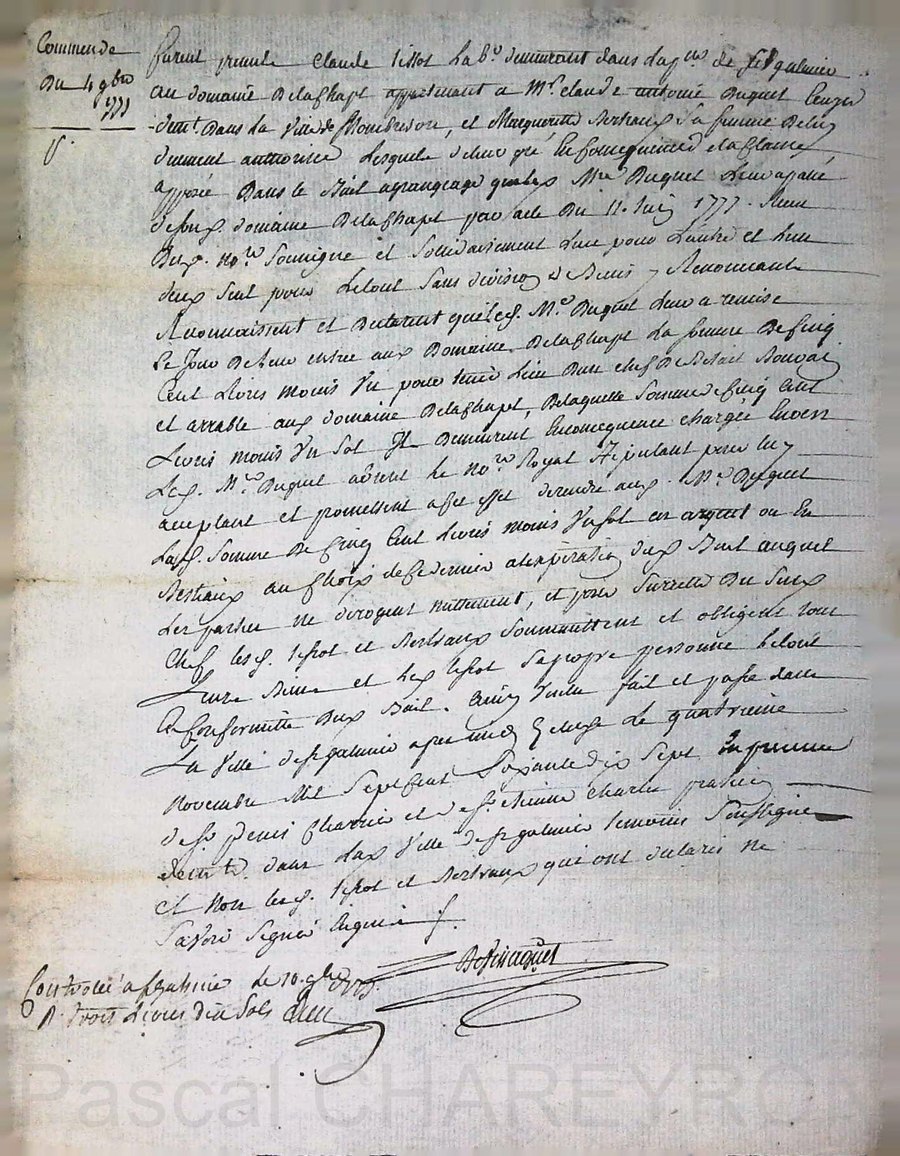 Commende
Du 4 9bre
1777
furent presents Claude tissot Lab.r demeurant dans la p.sse de st galmier
au domaine Delachapt appartenant a Mr. claude antoine Buquet
dem.t Dans La Ville de Montbrison, et Margueritte Bertrand sa femme De luy
deument authorisée Lesquels de leur gré En consequence de la Clause
apposée Dans le Bail a grangeage que led. Mre Buquet Leur a passé
desond. domaine Delachapt par acte Du 11. Juin 1777. Receu
Dud. no.re Soussigné et Solidairement L'un pour L'autre et L'un
deux Seul pour Letout Sans division ny Renonceants
Reconnaissent et Declarent que led. Mre Buquet Leur a remise
Le Jour De leur entrée aud Domaine Delachapt La somme De Cinq
Cent Livres moins Un pour tenir Lieu Dun chef De Betail
et arrable aud domaine Delachapt, Delaquelle Somme de Cinq Cent
Livres moins Un Sol Ils Demeurent En consequence chargés Envers
Led. Mre Buquet absent Le no.re Royal Stipulant pour luy
acceptant et promettent a cet effet de rendre aud. Mre Buquet
Lad. Somme De Cinq Cent Livres moins Un sol en argent ou En
Bestiaux au Choix de ce dernier a l'expiration dud Bail auquel
Les parties ne derogent nullement, et pour Surretté Du Susd
Chef lesd. tissot et Bertrand Soummettent et obligent tous
Leurs Biens et Led tissot Sa propre personne
En Conformitté Dud Bail. Ainsy Voulu fait et passé dans
La Ville de st galmier apres midy Le quatrieme
Novembre Mil Sept Cent Soixante dix Sept En presence
de sr. Denis Charrin et de sr. etienne charles praticien
dem.ts dans Lad Ville de st galmier temoins Soussignés
et Non lesd. tissot et Bertrand qui ont declarés ne
Savoir Signer Enquis
Controllé a st galmier Le 10. 9bre 1777.
R. trois Livres dix Sols
Pascal CHAREYRON